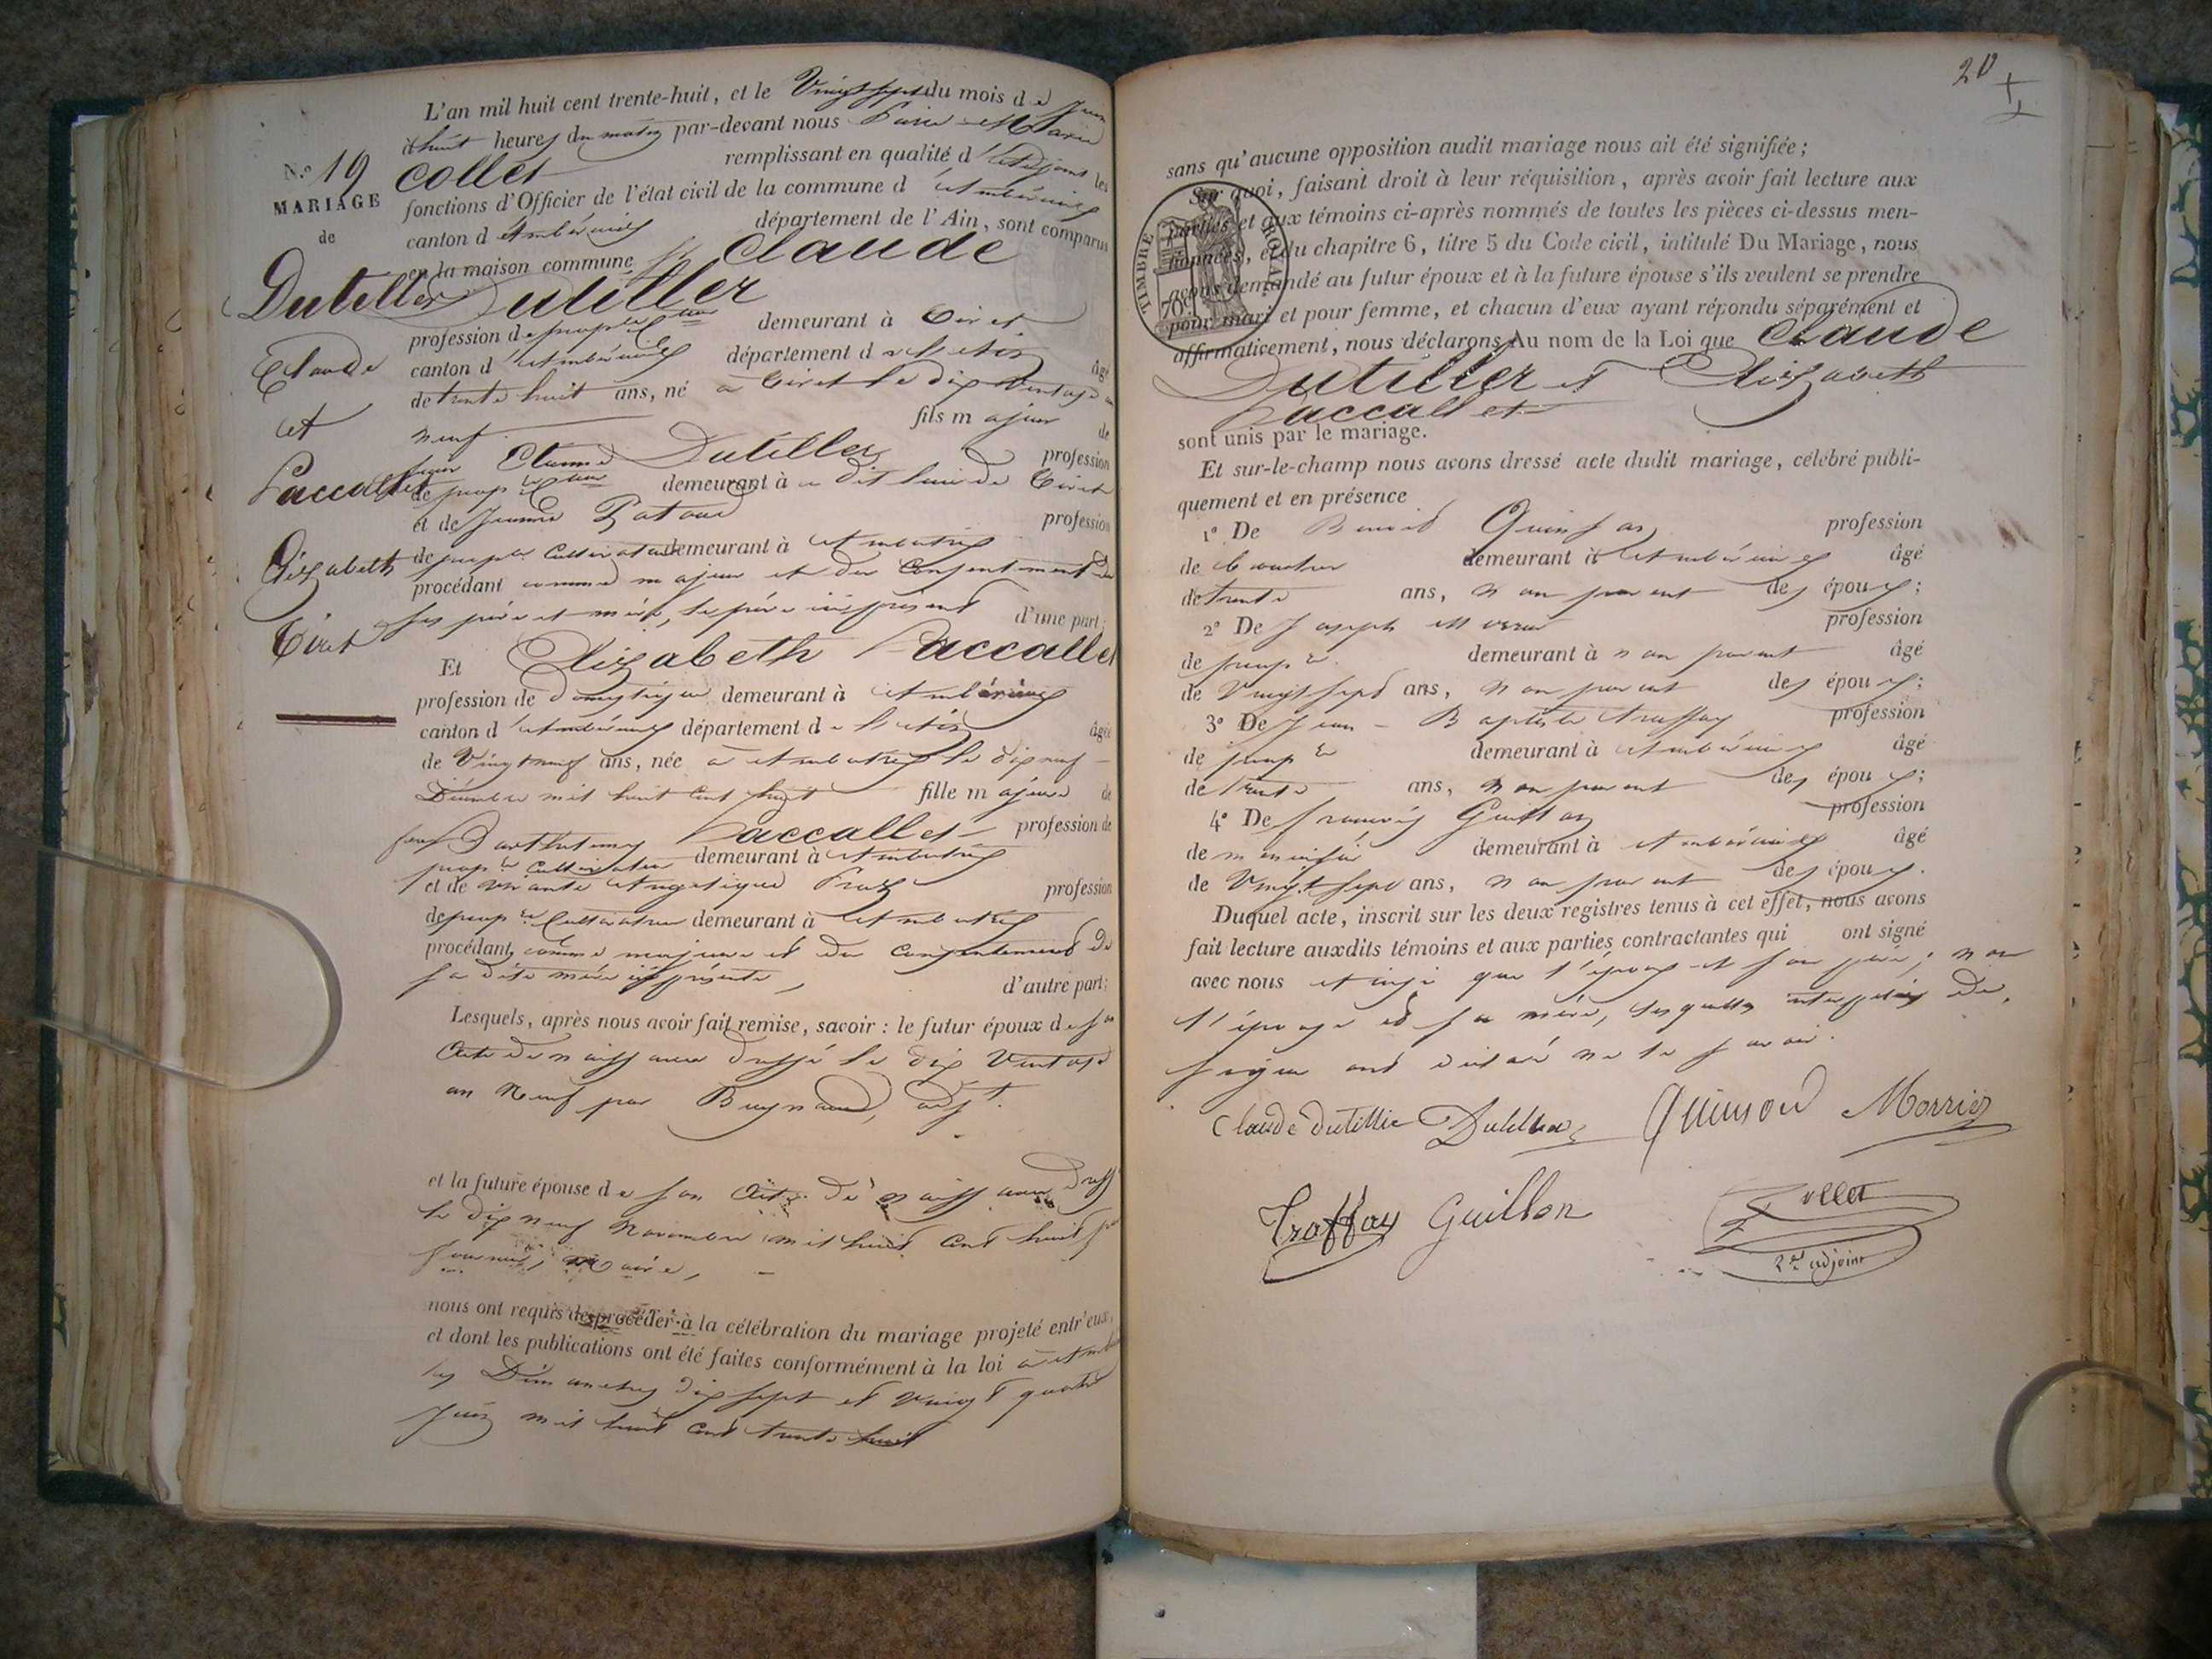 L'an mil huit cent trente-huit, et le Vingt sept du mois de Juin
à huit heures du matin par-devant nous Marie
Collet remplissant en qualité d'adjoint les
N.º 19
MARIAGE
de
Dutiller
Claude
et
Paccallet
Elizabeth
Ciret
fonctions d'Officier de l'état civil de la commune d'Ambérieux
canton d'Ambérieux département de l'Ain, sont comparus
en la maison commune Claude
Dutiller
profession de prop.re demeurant à
canton d'Ambérieux département de l'Ain âgé
de trente huit ans, né à le dix Ventose an
neuf fils majeur de
Etienne Dutiller profession
de prop.re demeurant à dit lieu de
et de Jeanne profession
de prop.re Cultivateur demeurant à Ambutrix
procédant comme majeur et du Consentement de
ses père et mère, le père ici présent d'une part;
Et Elizabeth Paccallet
profession de domestique demeurant à Ambérieux
canton d'Ambérieux département de l'Ain âgée
de Vingt neuf ans, née à Ambutrix le dix neuf
mil huit cent huit fille majeure de
feu Barthelemy Paccallet profession de
prop.re Cultivateur demeurant à Ambutrix
et de vivante Angelique profession
de prop.re Cultivateur demeurant à Ambutrix
procédant comme majeure et du Consentement de
sa dite mère ici présente, d'autre part;
Lesquels, après nous avoir fait remise, savoir : le futur époux de son
Acte de naissance dressé le dix Ventose
an Neuf par Buynand, adj.t
et la future épouse de son Acte de naissance dressé
le dix neuf Novembre mil huit Cent huit par
maire,
nous ont requis de procéder à la célébration du mariage projeté entr'eux,
et dont les publications ont été faites conformément à la loi à
les Dimanches dix sept et vingt quatre
Juin mil huit Cent trente huit
20
sans qu'aucune opposition audit mariage nous ait été signifiée;
Sur quoi, faisant droit à leur réquisition, après avoir fait lecture aux
parties et aux témoins ci-après nommés de toutes les pièces ci-dessus men-
tionnées, et du chapitre 6, titre 5 du Code civil, intitulé Du Mariage, nous
avons demandé au futur époux et à la future épouse s'ils veulent se prendre
pour mari et pour femme, et chacun d'eux ayant répondu séparément et
affirmativement, nous déclarons Au nom de la Loi que Claude
Dutiller et Elizabeth
Paccallet
sont unis par le mariage.
TIMBRE ROYAL
70
Et sur-le-champ nous avons dressé acte dudit mariage, célébré publi-
quement et en présence
1º De Benoit Quinson profession
de demeurant à Ambérieux âgé
de trente ans, non parent des époux;
2º De Joseph profession
de prop.re demeurant à non parent âgé
de Vingt sept ans, non parent des époux;
3º De Jean-Baptiste Traffay profession
de prop.re demeurant à Ambérieux âgé
de trente ans, non parent des époux;
4º De François Guillon profession
de menuisier demeurant à Ambérieux âgé
de Vingt sept ans, non parent des époux.
Duquel acte, inscrit sur les deux registres tenus à cet effet, nous avons
fait lecture auxdits témoins et aux parties contractantes qui ont signé
avec nous ainsi que l'époux et son père; non
l'épouse et sa mère, lesquelles interpellées de
signer ont déclaré ne le savoir.
Claude Dutillie Dutiller Quinson Morrier
Traffay Guillon Collet
2.d adjoint